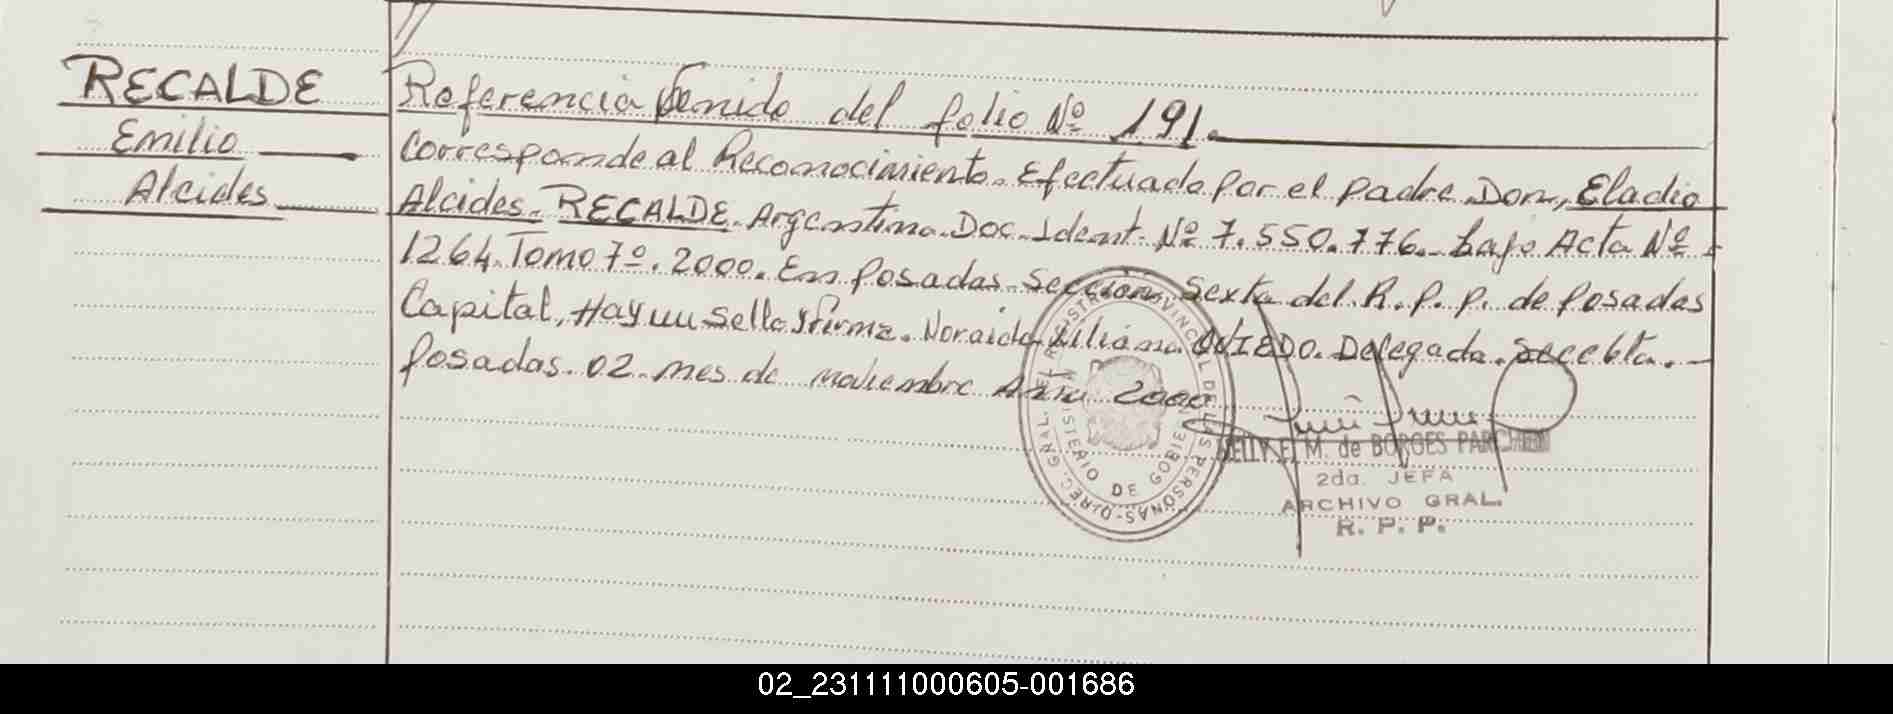 RECALDE
Emilio
Alcides
Referencia Venida del folio Nº 191.
Corresponde al Reconocimiento. Efectuado por el padre Don, Eladio
Alcides. RECALDE. Argentino. Doc. Ident. Nº 7.550.776. bajo Acta Nº
1264. Tomo 7º. 2000. En Posadas. Seccion Sexta del R.P.P. de Posadas
Capital, Hay un sello y firma. Noraida Liliana OVIEDO. Delegada.
Posadas. 02. mes de noviembre Año 2000
DIREC. GRAL. DEL REGISTRO PROVINCIAL DE LAS PERSONAS
MINISTERIO DE GOBIERNO
NELLY E. M. de BORGES
2da. JEFA
ARCHIVO GRAL.
R. P. P.
02_231111000605-001686